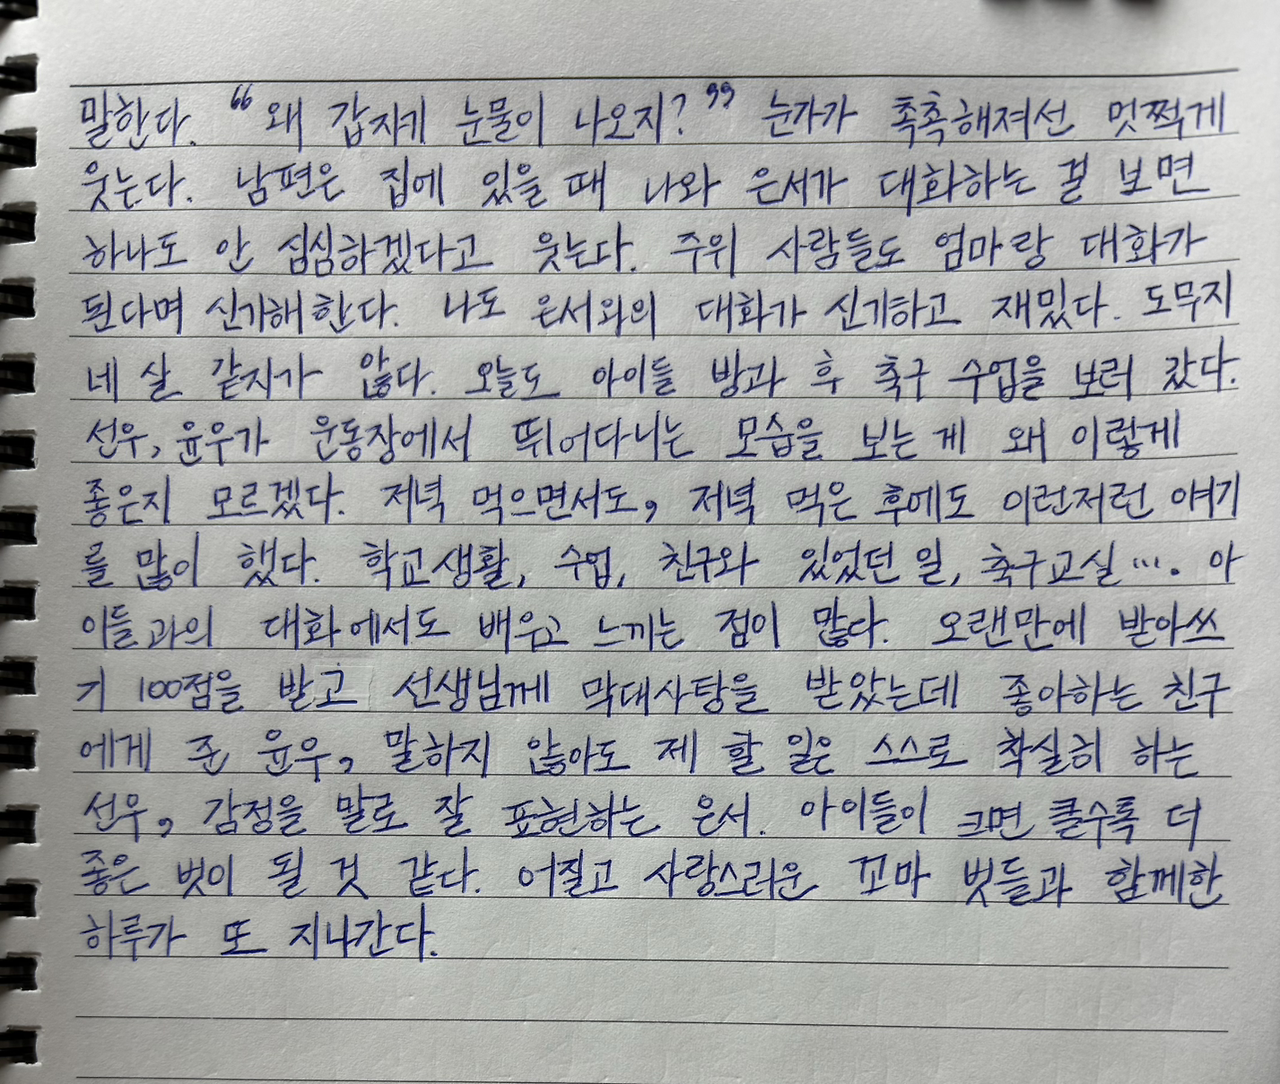 말한다. “왜 갑자기 눈물이 나오지?” 눈가가 촉촉해져선 멋쩍게
웃는다. 남편은 집에 있을 때 나와 은서가 대화하는 걸 보면
하나도 안 심심하겠다고 웃는다. 주위 사람들도 엄마랑 대화가
된다며 신기해한다. 나도 은서와의 대화가 신기하고 재밌다. 도무지
네 살 같지가 않다. 오늘도 아이들 방과 후 축구 수업을 보러 갔다.
선우, 윤우가 운동장에서 뛰어다니는 모습을 보는 게 왜 이렇게
좋은지 모르겠다. 저녁 먹으면서도, 저녁 먹은 후에도 이런저런 얘기
를 많이 했다. 학교생활, 수업, 친구와 있었던 일, 축구교실…. 아
이들과의 대화에서도 배우고 느끼는 점이 많다. 오랜만에 받아쓰
기 100점을 받고 선생님께 막대사탕을 받았는데 좋아하는 친구
에게 준 윤우, 말하지 않아도 제 할 일은 스스로 착실히 하는
선우, 감정을 말로 잘 표현하는 은서. 아이들이 크면 클수록 더
좋은 벗이 될 것 같다. 어질고 사랑스러운 꼬마 벗들과 함께한
하루가 또 지나간다.